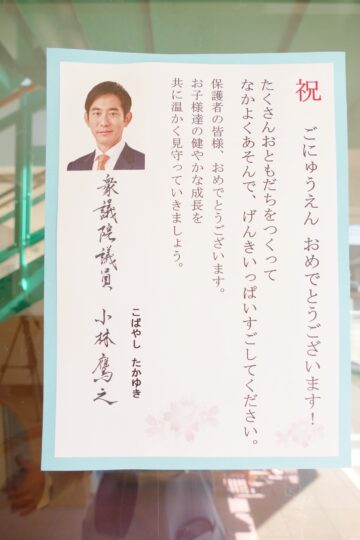 祝
ごにゅうえん おめでとうございます!
たくさんおともだちをつくって
なかよくあそんで、げんきいっぱいすごしてください。
保護者の皆様、おめでとうございます。
お子様達の健やかな成長を
共に温かく見守っていきましょう。
衆議院議員 小林鷹之
こばやし たかゆき